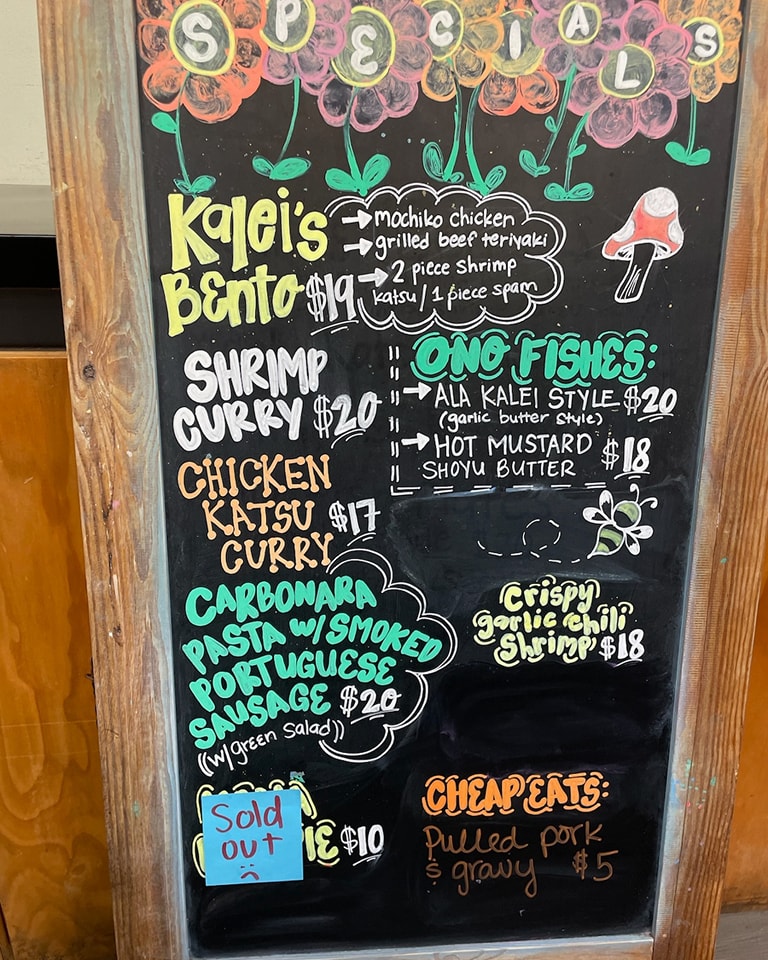 SPECIALS
Kalei's
Bento $19
→ mochiko chicken
→ grilled beef teriyaki
→ 2 piece shrimp
katsu / 1 piece spam
SHRIMP
CURRY $20
ONO FISHES:
→ ALA KALEI STYLE $20
(garlic butter style)
→ HOT MUSTARD
SHOYU BUTTER $18
CHICKEN
KATSU
CURRY $17
CARBONARA
PASTA W/ SMOKED
PORTUGUESE
SAUSAGE $20
((w/green salad))
Crispy
garlic chili
Shrimp $18
Sold
out
$10
CHEAP EATS:
Pulled pork
& gravy $5